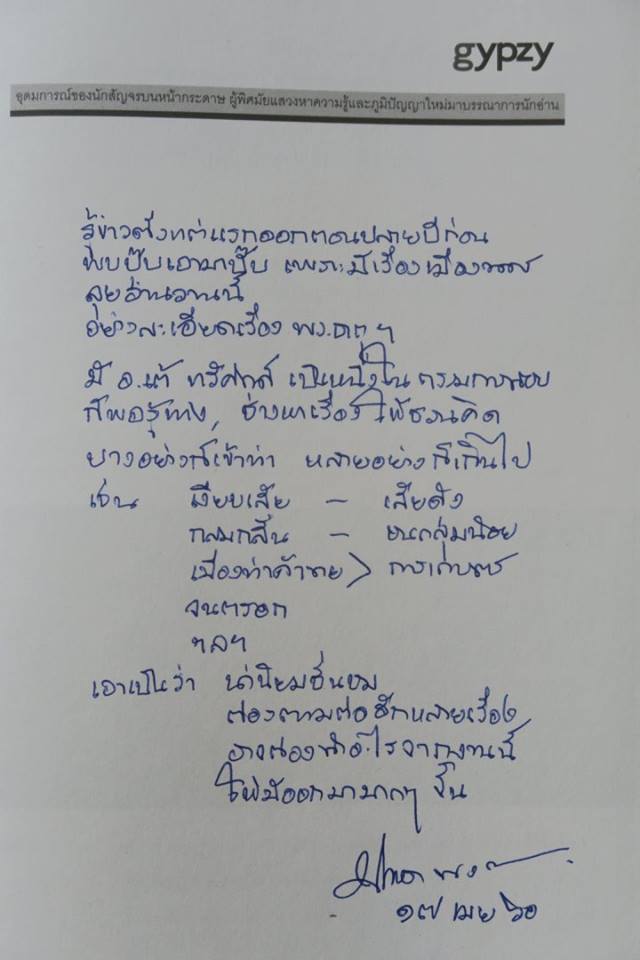 gypzy
อุดมการณ์ของนักสัญจรบนหน้ากระดาษ ผู้พิศมัยแสวงหาความรู้และภูมิปัญญาใหม่มาบรรณาการนักอ่าน
รู้ข่าวตั้งแต่แรกออกตอนปลายปีก่อน
พบปั๊บเอามาปั๊บ เพราะมีเรื่องเมือง
ลุยอ่านวานนี้
อย่างละเอียดเรื่อง พระธาตุฯ
มี อ.เต้ ทวีศักดิ์ เป็นหนึ่งใน กรรมการสอบ
ก็พอรู้ทาง, ช่างหาเรื่อง ให้ชวนคิด
บางอย่างก็เข้าท่า หลายอย่างก็เกินไป
เช่น เงียบเสีย – เสียดัง
กลมกลืน – ชนกลุ่มน้อย
เมืองท่าค้าขาย > การเกษตร
จนตรอก
ฯลฯ
เอาเป็นว่า น่านิยมชื่นชม
ต้องตามต่ออีกหลายเรื่อง
อาจต้องทำอะไรจากงานนี้
ให้มีออกมามากๆ ขึ้น
๑๗ เมย ๖๐